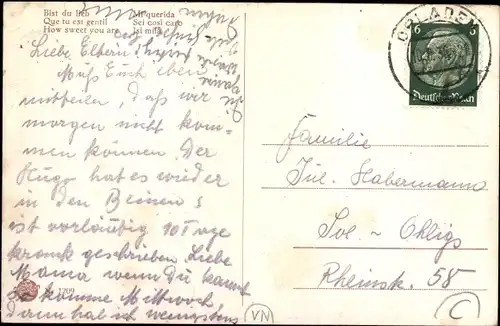 Bist du lieb
Que tu est gentil
How sweet you are
Mi querida
Sei così caro
Liebe Eltern!
Muß Euch eben
mitteilen, daß wir
morgen nicht kom-
men können. Der
Hugo hat es wieder
in den Beinen
ist vorläufig 10 Tage
krank geschrieben. Liebe
Mama wenn Du kannst
so komme Mittwoch,
Dann hab ich wenigstens
1209
6
6
Deutsches Reich
OPLADEN
Familie
Jul. Habermann
Sol. - Ohligs
Rheinstr. 58
VN
C